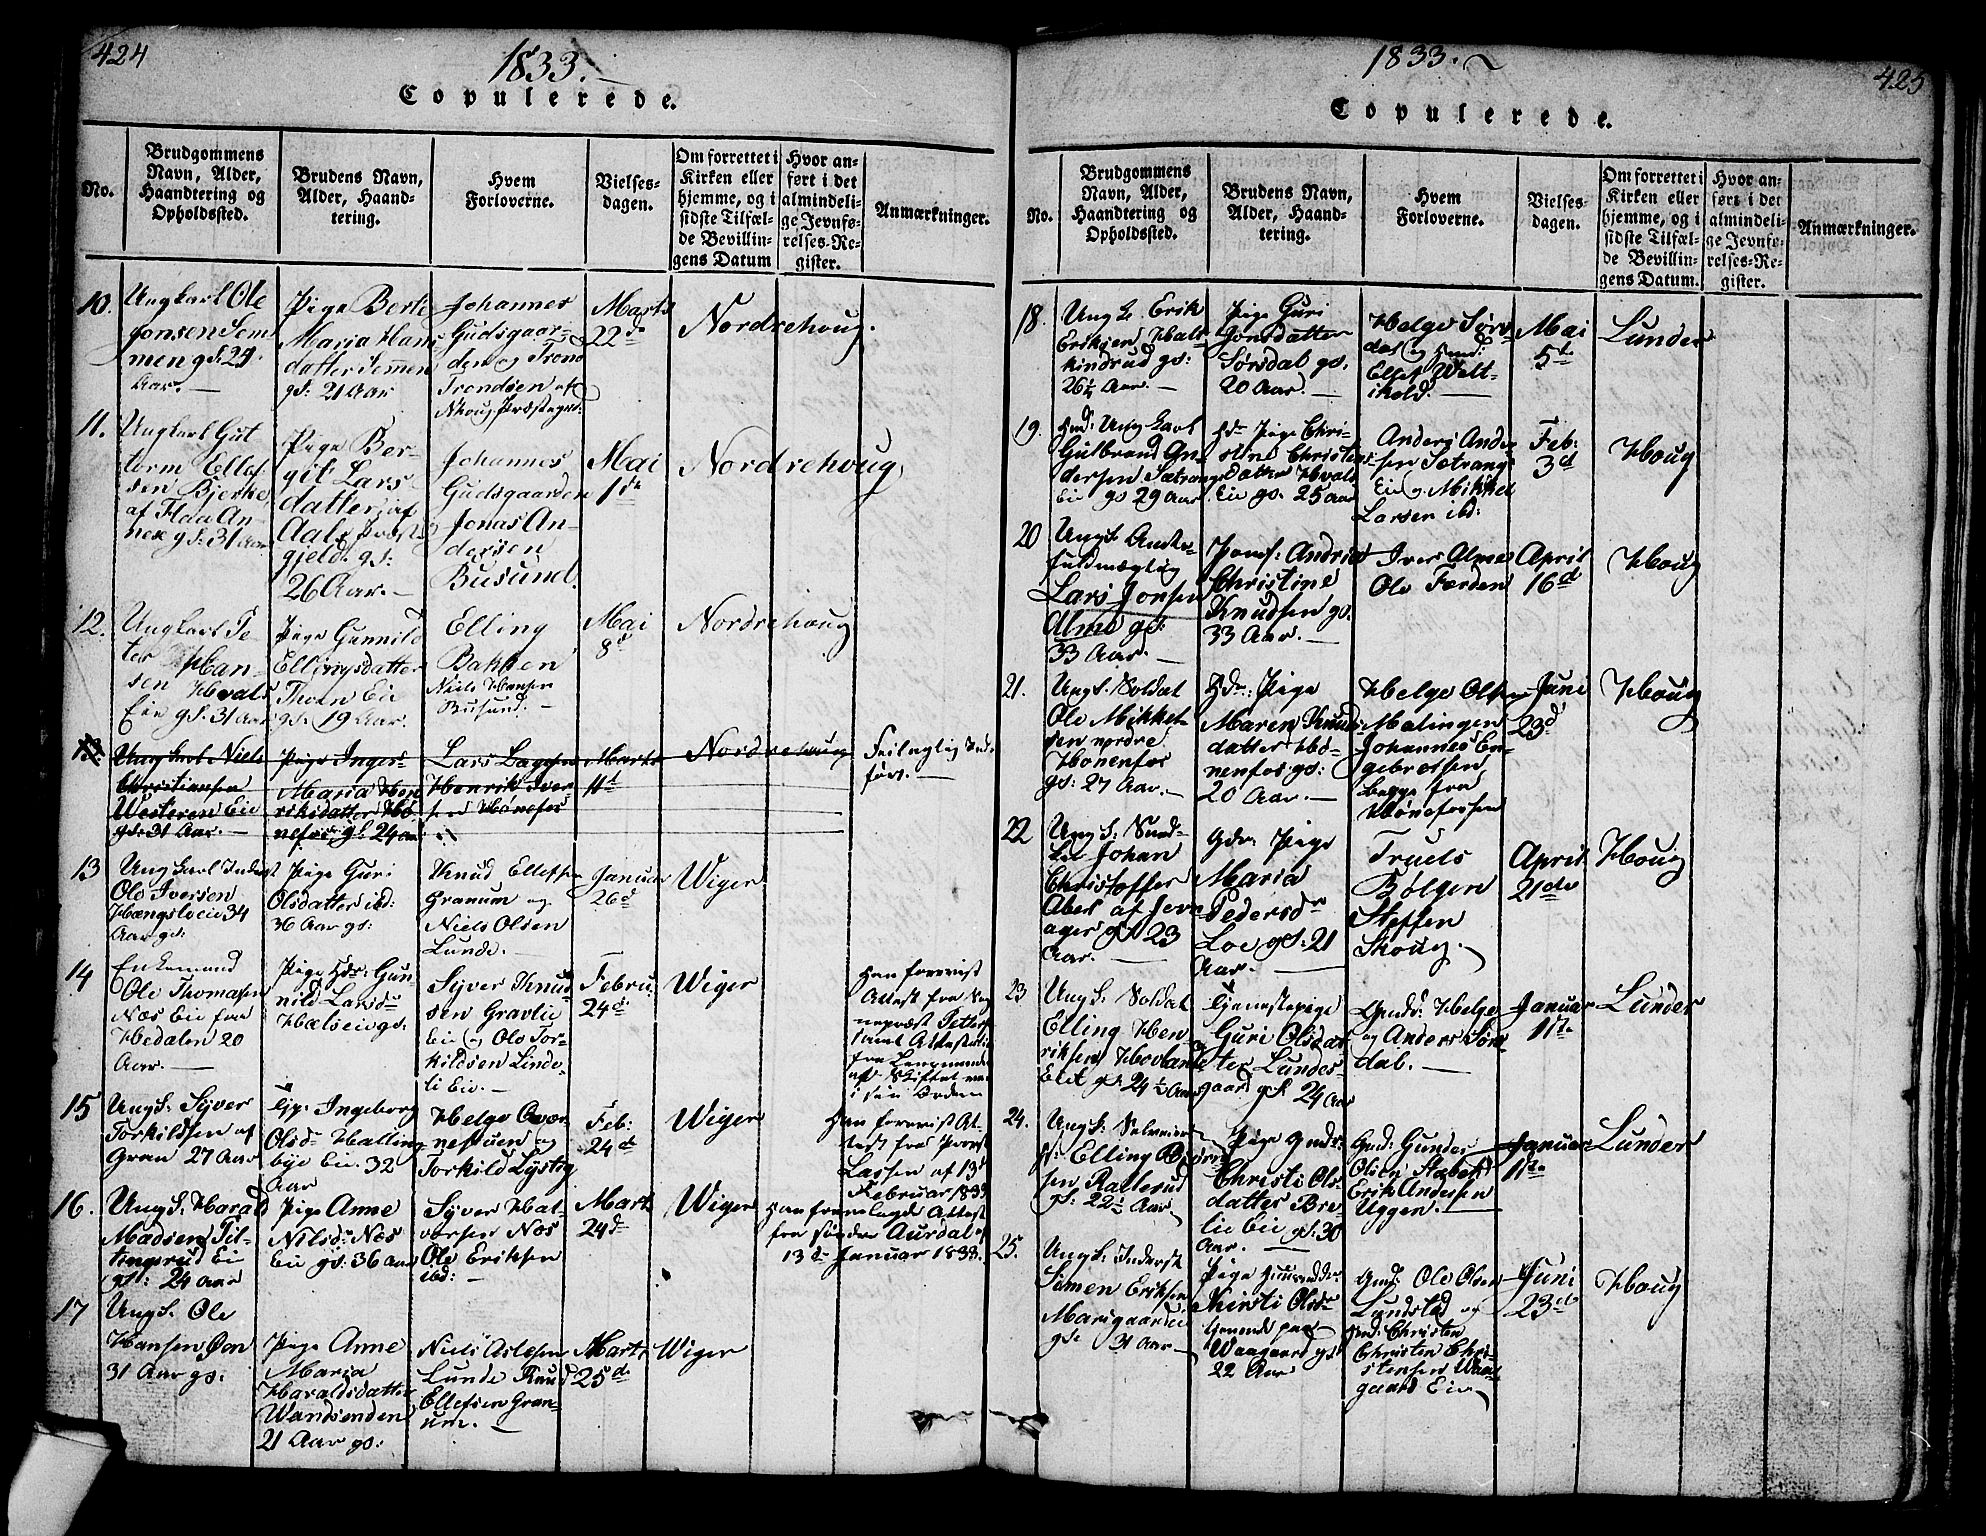 424
1833.
Copulerede.
No.
Brudgommens
Navn, Alder,
Haandtering og
Opholdssted.
Brudens Navn,
Alder, Haand-
tering.
Hvem
Forloverne.
Vielses-
dagen.
Om forrettet i
Kirken eller
hjemme, og i
sidste Tilfæl-
de Bevillin-
gens Datum
Hvor an-
ført i det
almindeli-
ge Jevnfø-
relses-Re-
gister.
Anmærkninger.
10.
Ungkarl Ole
Jonsen Sem-
men gs: 24
Aar. —
Pige Berte
Maria Hans
datter Semmen
gs: 21 Aar
Johannes
Gudsgaar-
den og Trond
Trondsen af
Marts
22de
Nordrehoug.
11.
Ungkarl Gut
torm Ellef-
sen Bjerke
af Flaa An-
nex gs: 31 Aar
Pige Ber-
git Lars
datter af
Aals Præste
gjeld gs:
26 Aar. —
Johannes
Gudsgaarden
Jonas An-
dersen
Busund.
Mai
1ste
Nordrehoug
12.
Ungkarl Pe-
ter Han-
sen Hvals
Eie gs. 31 Aar
Pige Gunnild
Ellingsdatter
Thorn Eie
gs. 19 Aar.
Elling
Bakken
Niels Hansen
Busund. —
Mai
8de
Nordrehoug
Ungkarl Niels
Christiansen
Westeren Eie
gs: 31 Aar. —
Pige Inger
Maria Hen
riksdatter Hø-
nefos gs. 24 Aar
Lars
Henrik Iver
sen Hønefos
Marts
11te
Nordrehoug
Feilagtig Ind-
ført. —
13
Ungkarl Inderst
Ole Iversen
Hængsleeie 34
Aar gs:
Pige Guri
Olsdatter ibd:
36 Aar gs:
Knud Ellefsen
Granum og
Niels Olsen
Lunde. —
Januar
26de
Wiger
14
Enkemand
Ole Thomasen
Næs Eie fra
Hedalen 20
Aar. —
Pige Hdr: Gun-
nild Larsdr
Hælseie gs:
Syver Knud
sen Gravlie
Eie og Ole Tor-
kildsen Linde-
li Eie. —
Febru:
24de
Wiger
Han foreviist
Attest fra Sog
nepræst
samt Attestatie
fra
15
Ungk. Syver
Torkildsen af
Gran 27 Aar
Tjp. Ingeborg
Olsd Halling
bye Eie. 32
Aar
Helge Aver
nestuen og
Torkild Lystig
Feb:
24de
Wiger
Han foreviist At-
test fra Præst
Lassen af 13d
Februar 1833
16.
Ungk. Harald
Madsen Til-
tingsrud Ei
gs: 24 Aar
Pige Anne
Nilsd: Næs
Eie gs: 36 Aar
Syver Hal-
vorsen Næs
Ole Eriksen
ibd: —
Marts
24de
Wiger
Han fremlagde Attest
fra søndre Aurdal af
13de Januar 1833.
17
Ungk. Ole
Hansen Øen
31 Aar gs:
Pige Anne
Maria
Haraldsdatter
Wandsenden
21 Aar gs:
Niels Aslesen
Lunde Knud
Ellefsen Gran-
um. —
Marts
25de
Wiger
1833.
425
Copulerede.
No.
Brudgommens
Navn, Alder,
Haandtering og
Opholdssted.
Brudens Navn,
Alder, Haand-
tering.
Hvem
Forloverne.
Vielses-
dagen.
Om forrettet i
Kirken eller
hjemme, og i
sidste Tilfæl-
de Bevillin-
gens Datum.
Hvor an-
ført i det
almindeli-
ge Jevnfø-
relses-Re-
gister.
Anmærkninger.
18.
Ungk Erik
Eriksen Halt-
kindrud gs:
26½ Aar. —
Pige Guri
Jonsdatter
Sørsdal gs.
20 Aar. —
Helge Sørs-
dal og
Ellef Welt-
Mai
5te
Lunder
19.
Hmd. Ungkarl
Gulbrand An-
dersen Sætrang
Eie gs 29 Aar
Hdr Pige Chri-
stine Christens
datter Hvals
Eie gs. 25 Aar
Anders Ander-
sen Sætrang
Eie og Mikkel
Larsen ibd:
Feb:
3d
Houg
20
Ungk. Amts-
fuldmægtig
Lars Jonsen
Alme gs:
33 Aar. —
Jomf: Andrea
Christine
Knudsen gs.
33 Aar. —
Iver Alme
Ole Færden
April
16de
Houg
21.
Ungk. Soldat
Ole Mikkel-
sen nordre
Hønenfos
gs: 27 Aar. —
Hdr: Pige
Maren Knuds-
datter Hø-
nenfos gs:
20 Aar. —
Helge Olsen
Malingen
Johannes En-
gebretsen
begge fra
Hønefossen
Juni
23de
Houg
22
Ungk:
Johan
Christoffer
Abel af Jevn-
ager gs 23
Aar. —
Gdr: Pige
Maria
Pedersdr
Loe gs: 21
Aar. —
Truels
Bølgen
Steffen
Skoug.
April
21de
Houg
23
Ungk. Soldat
Elling Hen
riksen Hovland
Eiet gs 24½ Aar
Tjenestepige
Guri Olsdat
ter Lundes-
gaard gs 24 Aar
Gmd: Helge
og Anders Sørs-
dal. —
Januar
11te
Lunder
24.
Ungk. Selveier
s: Elling Bjørn-
sen Rallerud
gs: 22½ Aar.
Pige Gmdr:
Christi Ols-
datter Bre-
lie Eie gs: 30
Aar. —
Gmd: Gunder
Olsen Stabek
Erik Andersen
Uggen. —
Januar
11te
Lunder
25.
Ungk: Inderst
Simen Eriksen
gs: 31 Aar —
Pige Huusmdr.
Kirsti Olsdr
tjenende paa
Waagaard gs
22 Aar
Gmd: Ole Olsen
Lundstad og
Hmd: Christen
Christen Chri-
stensen Waa-
gaard Eie. —
Juni
23de
Houg